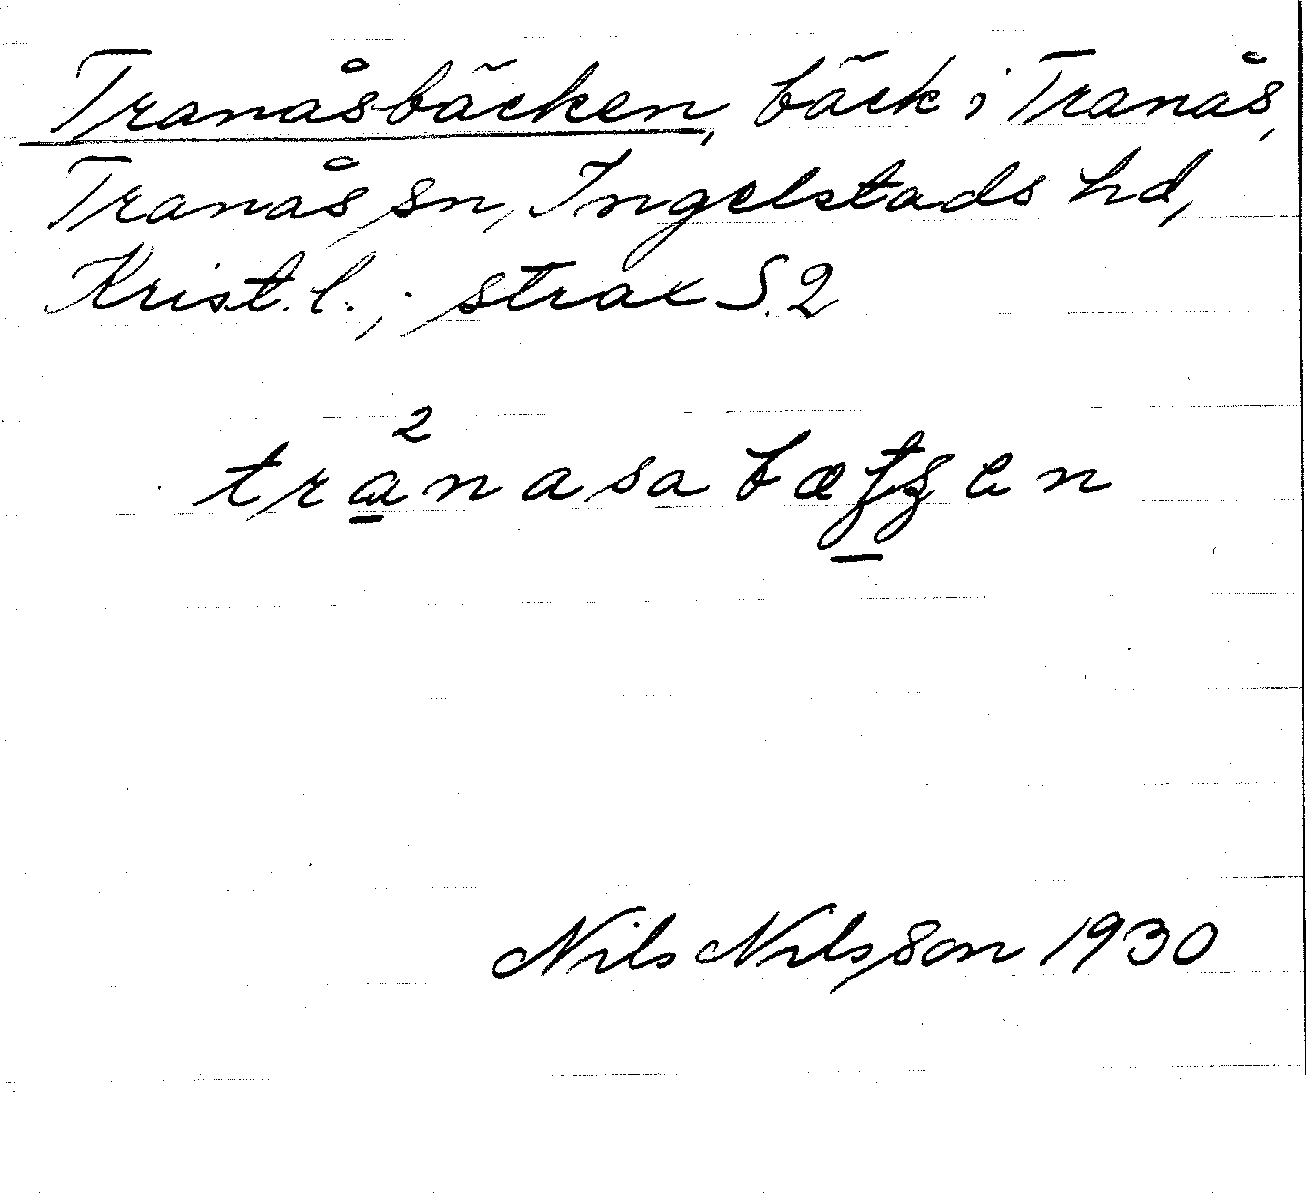 Tranåsbäcken, bäck i Tranås,
Tranås sn, Ingelstads hd,
Krist. l.; strax S. 2
2
tranasa
Nils Nilsson 1930